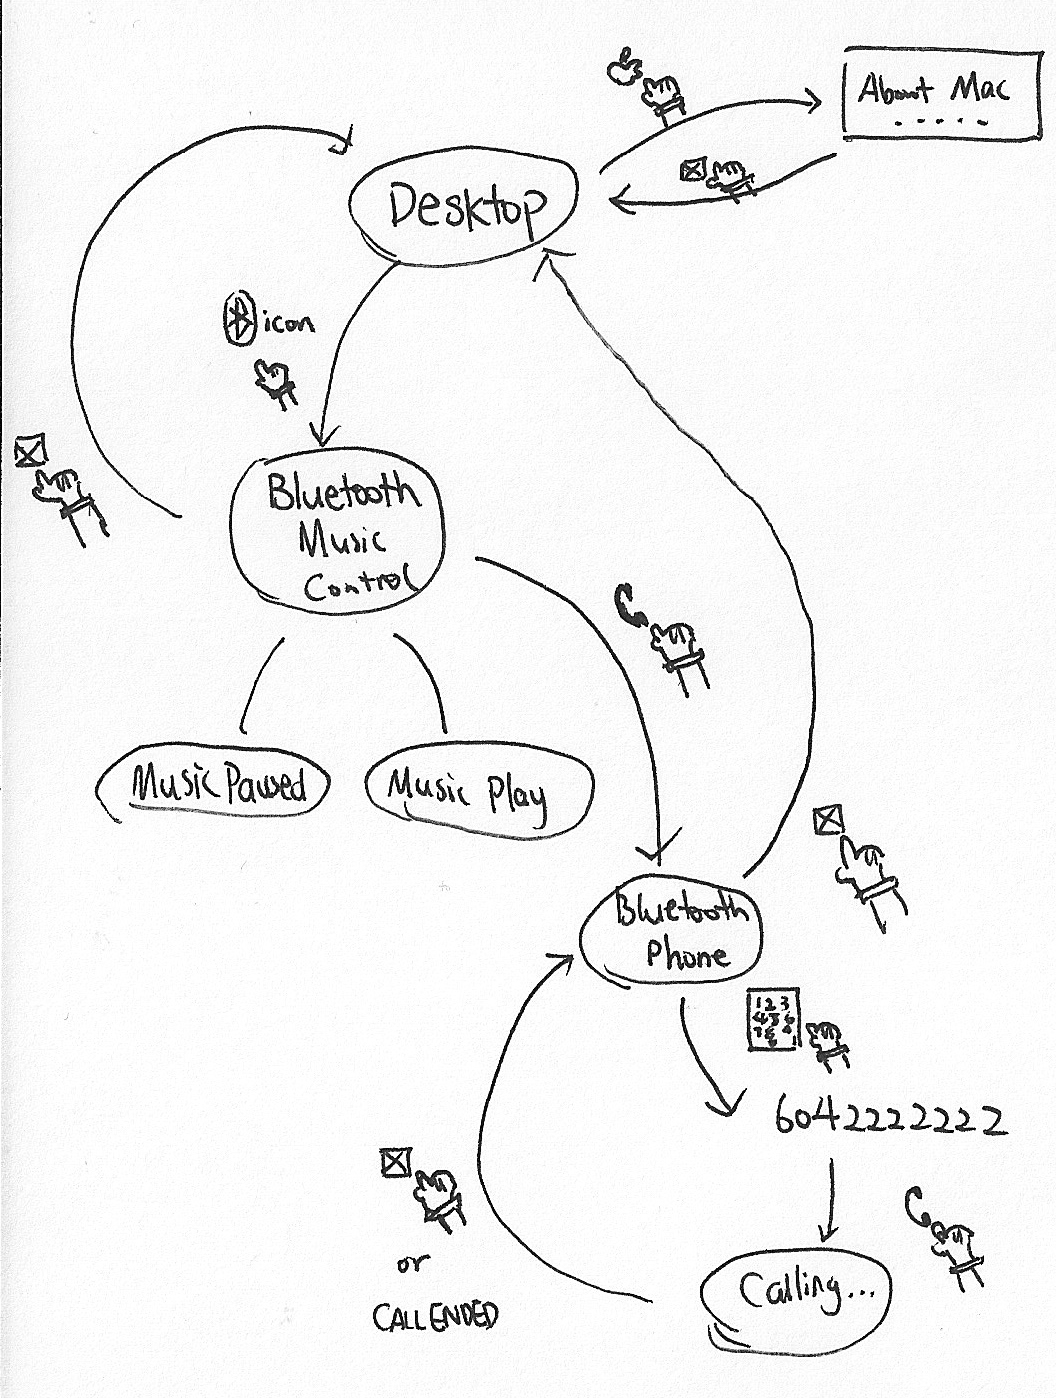 About Mac
.....
Desktop
icon
Bluetooth
Music
Control
Music Paused
Music Play
Bluetooth
Phone
1 2 3
6042222222
or
CALL ENDED
Calling...